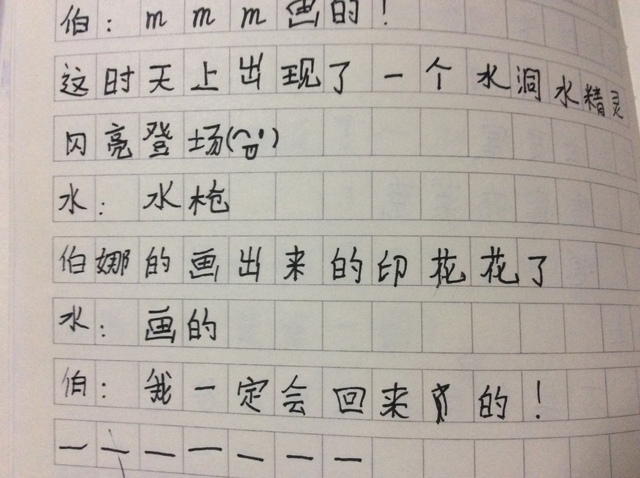 伯：mmm画的！
这时天上出现了一个水洞水精灵
闪亮登场
水：水枪
伯娜的画出来的印花花了
水：画的
伯：我一定会回来的！
一一一一一一一